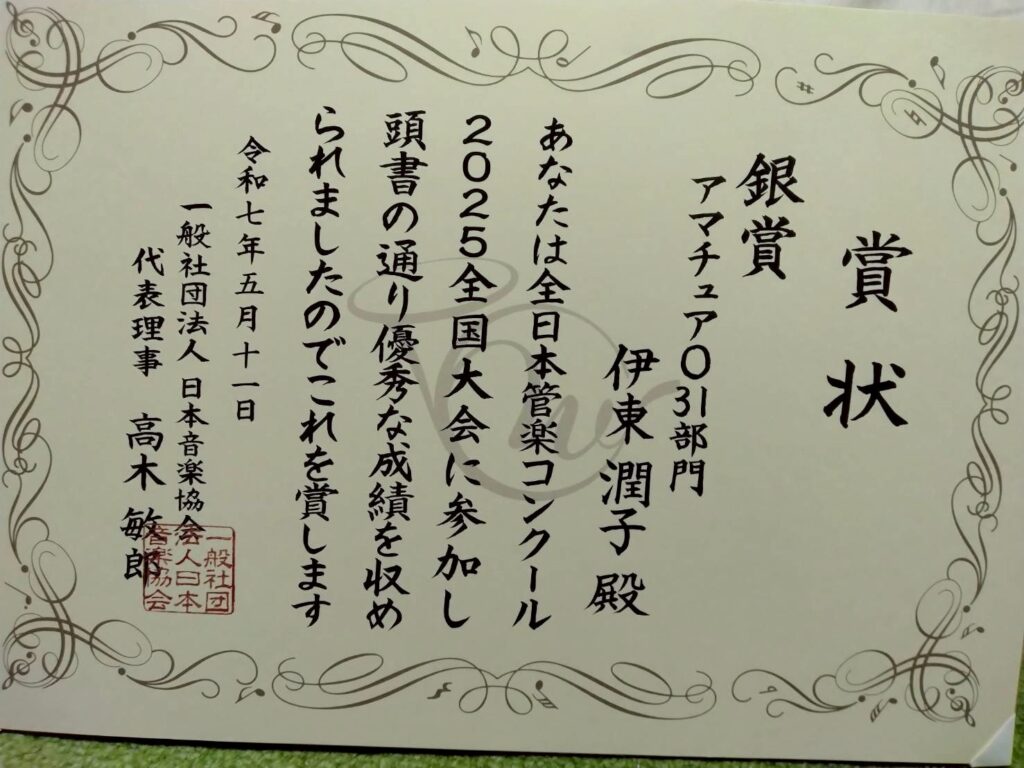 賞状
銀賞
アマチュアO31部門
伊東潤子 殿
あなたは全日本管楽コンクール
2025全国大会に参加し
頭書の通り優秀な成績を収め
られましたのでこれを賞します
令和七年五月十一日
一般社団法人 日本音楽協会
代表理事 高木敏郎
一般社団
法人日本
音楽協会